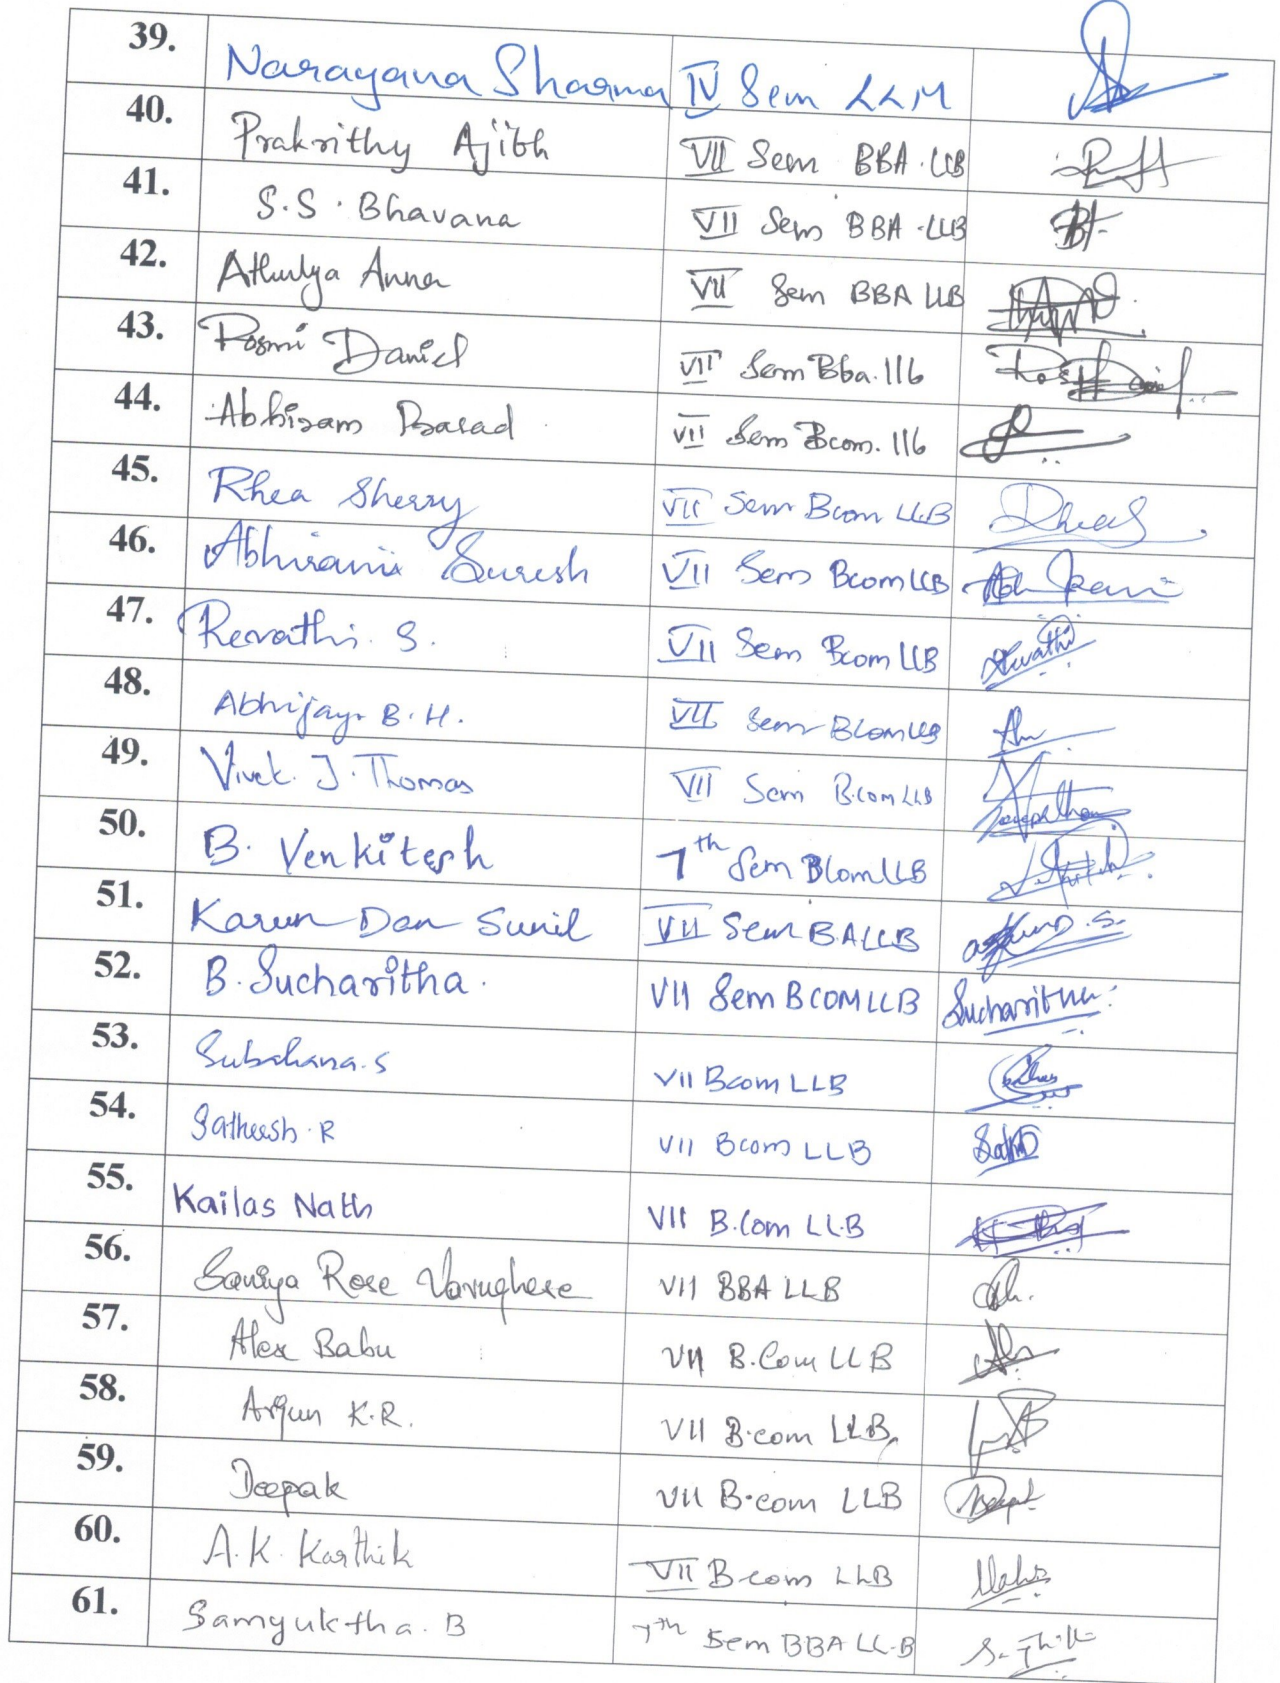 39. Narayana Sharma IV Sem LLM
40. Prakrithy Ajith VII Sem BBA.LLB
41. S.S. Bhavana VII Sem BBA.LLB
42. Athulya Anna VII Sem BBA LLB
43. Rosmi Daniel VII Sem Bba.llb
44. Abhiram Prasad VII Sem Bcom.llb
45. Rhea Sherry VII Sem Bcom LLB
46. Abhirami Suresh VII Sem Bcom LLB
47. Revathi. S. VII Sem Bcom LLB
48. Abhijay B.H. VII Sem Bcom LLB
49. Vivek. J. Thomas VII Sem B.Com LLB
50. B. Venkitesh 7th Sem BComLLB
51. Karun Dan Sunil VII Sem BALLB
52. B. Sucharitha. VII Sem BCOMLLB Sucharitha
53. VII Bcom LLB
54. Satheesh.R VII Bcom LLB
55. Kailas Nath VII B.Com LLB
56. Saniya Rose Varughese VII BBA LLB
57. Alex Babu VII B.Com LLB
58. Arjun K.R. VII B.com LLB
59. Deepak VII B.com LLB
60. A.K. Karthik VII B.com LLB
61. Samyuktha. B 7th Sem BBA LL.B